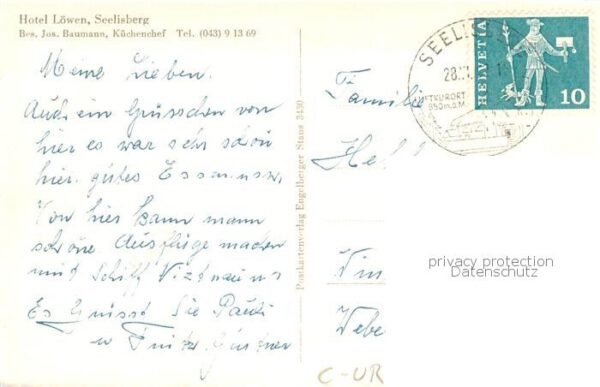 Hotel Löwen, Seelisberg
Bes. Jos. Baumann, Küchenchef Tel. (043) 9 13 69
Meine Lieben.
Auch ein Grüsschen von
hier es war sehr schön
hier. gutes Essen usw.
Von hier kann mann
schöne Ausflüge machen
mit Schiff Viznau us
Es Grüsst Sie Paudi
u Fritz
Postkartenverlag Engelberger Stans 3430
Familie
Hel
Vin
Webe
SEELIS
28.
LUFTKURORT
850 m.ü.M.
HELVETIA
10
privacy protection
Datenschutz
C-UR